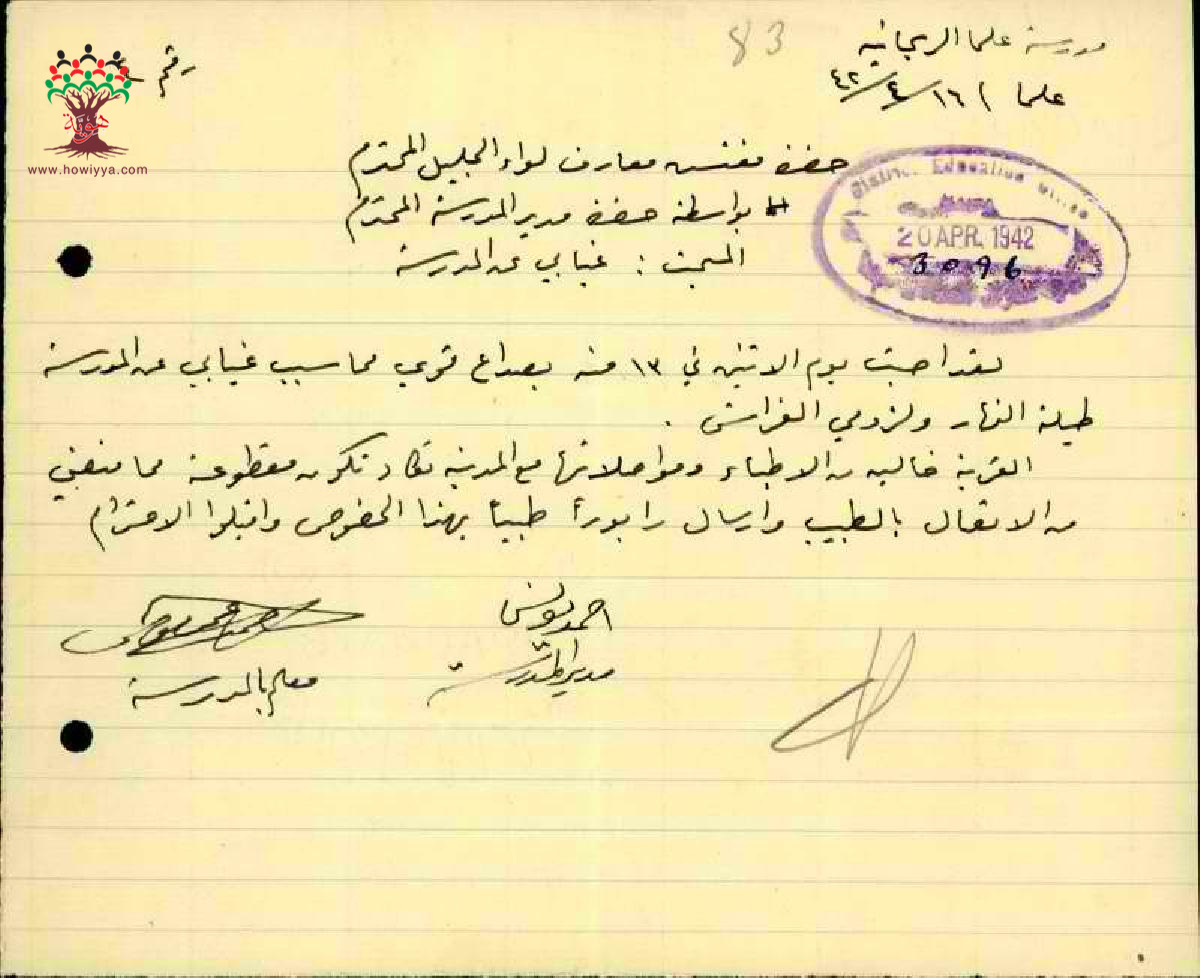 83
مدرسة علما الريحانية
رقم
علما ١٦/٤/٤٢
هوية
www.howiyya.com
حضرة مفتش معارف لواء الجليل المحترم
بواسطة حضرة مدير المدرسة المحترم
المبحث : غيابي عن المدرسة
District Education Office
20 APR. 1942
3096
لقد اصبت يوم الاثنين في ١٣ منه بصداع قوي مما سبب غيابي عن المدرسة
طيلة النهار ولزومي الفراش .
القرية خالية من الاطباء ومواصلاتها مع المدينة تكاد تكون مقطوعة مما منعني
من الاتصال بالطبيب وارسال رابوراً طبياً بهذا الخصوص واقبلوا الاحترام
احمد يونس
مدير المدرسة
معلم بالمدرسة